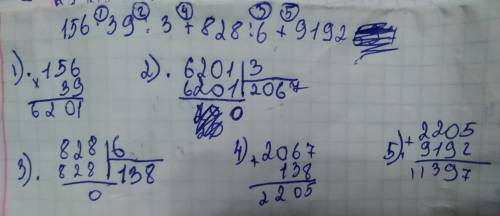 ① ② ④ ③ ⑤
156 · 39 : 3 + 828 : 6 + 9192
1). 156
× 39
6201
2). 6201 | 3
6201 | 2067
0
3). 828 | 6
828 | 138
0
4) 2067
+ 138
2205
5). 2205
+ 9192
11397